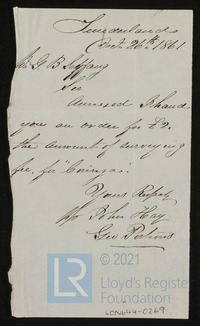 Sunderland
Oct. 26th 1861
B. Tiffany
Sir
Annexed I hand
you an order for £2.
the amount of surveying
fee. for "Coringa".
Yours Respy
pr John Hay
Geo Perkins
© 2021
Lloyd's Register
Foundation
LONG44-0269